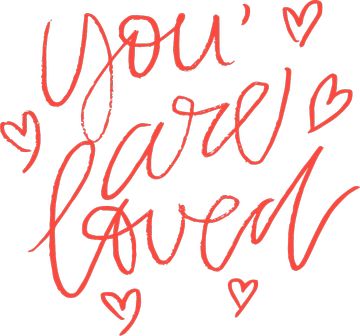 you
are
loved